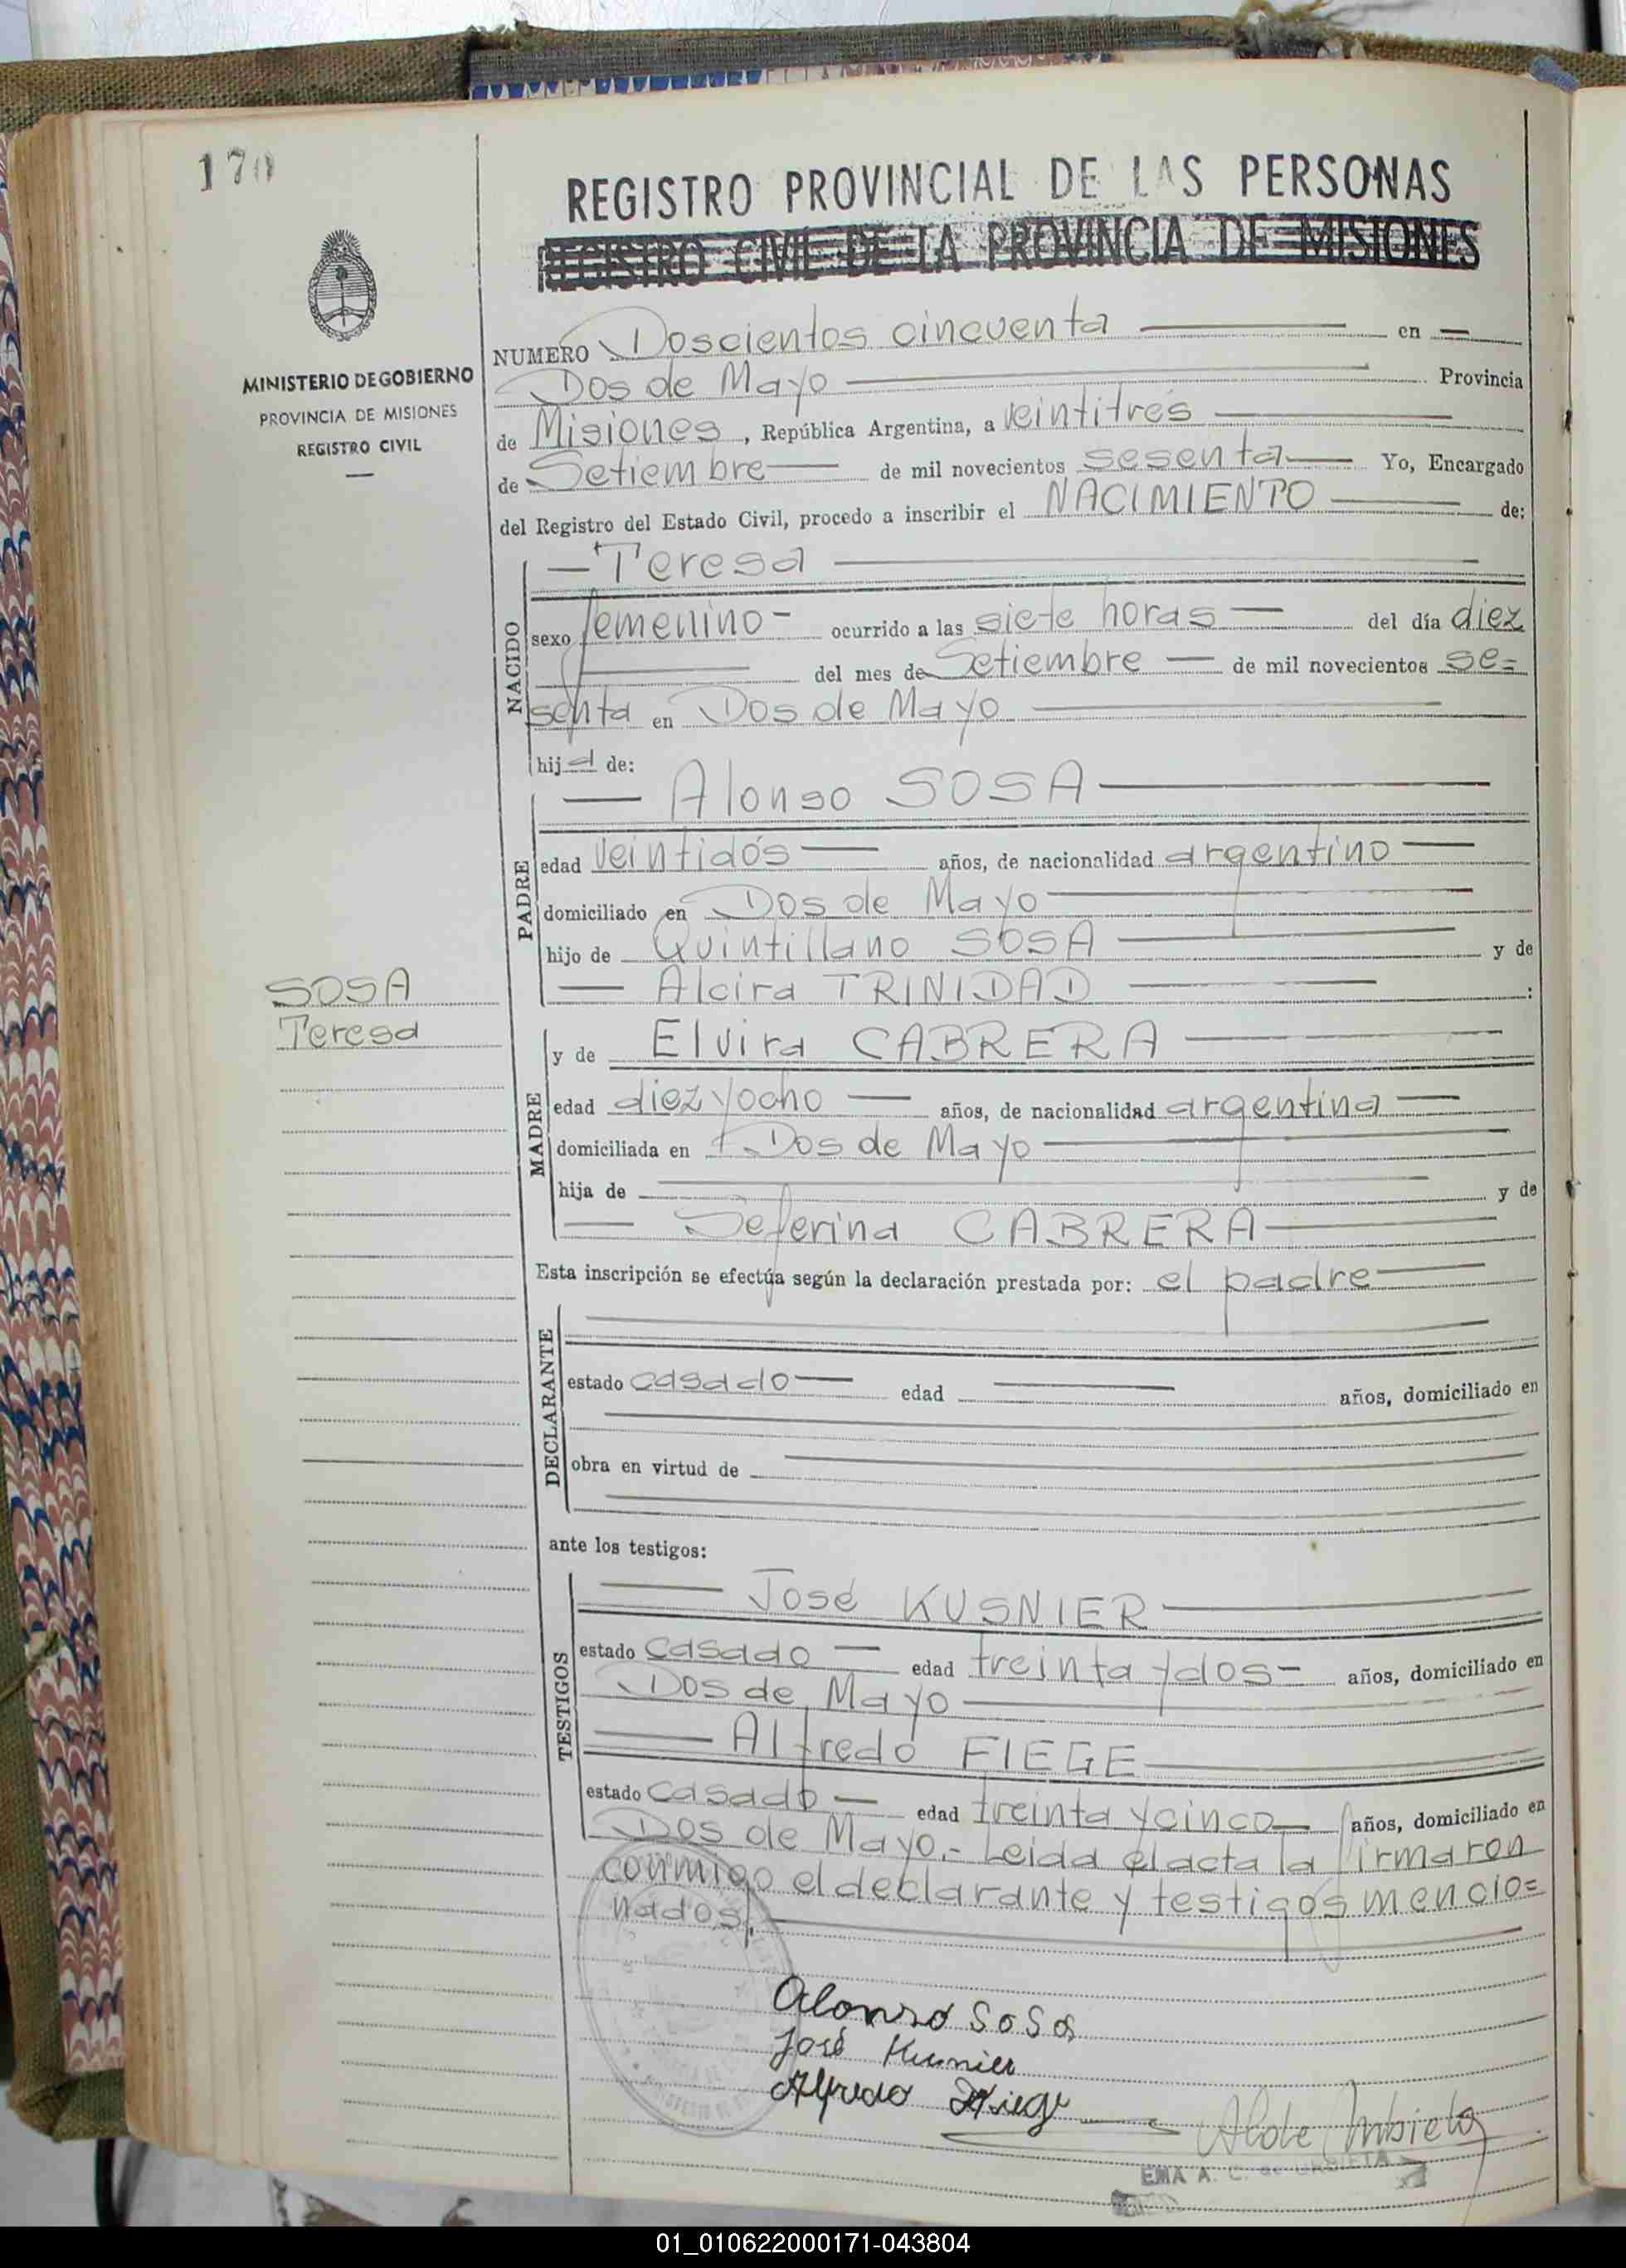 170
REGISTRO PROVINCIAL DE LAS PERSONAS
REGISTRO CIVIL DE LA PROVINCIA DE MISIONES
MINISTERIO DE GOBIERNO
PROVINCIA DE MISIONES
REGISTRO CIVIL
NUMERO Doscientos cincuenta en
Dos de Mayo Provincia
de Misiones, República Argentina, a veintitrés
de Setiembre de mil novecientos sesenta Yo, Encargado
del Registro del Estado Civil, procedo a inscribir el NACIMIENTO de:
NACIDO
Teresa
sexo femenino ocurrido a las siete horas del día diez
del mes de Setiembre de mil novecientos se=
senta en Dos de Mayo
hija de:
PADRE
Alonso SOSA
edad veintidós años, de nacionalidad argentino
domiciliado en Dos de Mayo
hijo de Quintillano SOSA y de
Alcira TRINIDAD :
SOSA
Teresa
MADRE
y de Elvira CABRERA
edad diez y ocho años, de nacionalidad argentina
domiciliada en Dos de Mayo
hija de y de
Seferina CABRERA
Esta inscripción se efectúa según la declaración prestada por: el padre
DECLARANTE
estado casado edad años, domiciliado en
obra en virtud de
ante los testigos:
TESTIGOS
José KUSNIER
estado casado edad treinta y dos años, domiciliado en
Dos de Mayo
Alfredo FIEGE
estado casado edad treinta y cinco años, domiciliado en
Dos de Mayo.- Leida el acta la firmaron
conmigo el declarante y testigos mencio=
nados.
Alonso SoSa
José Kusnier
Alfredo Fiege
EMA A. C. de URBIETA
01_010622000171-043804